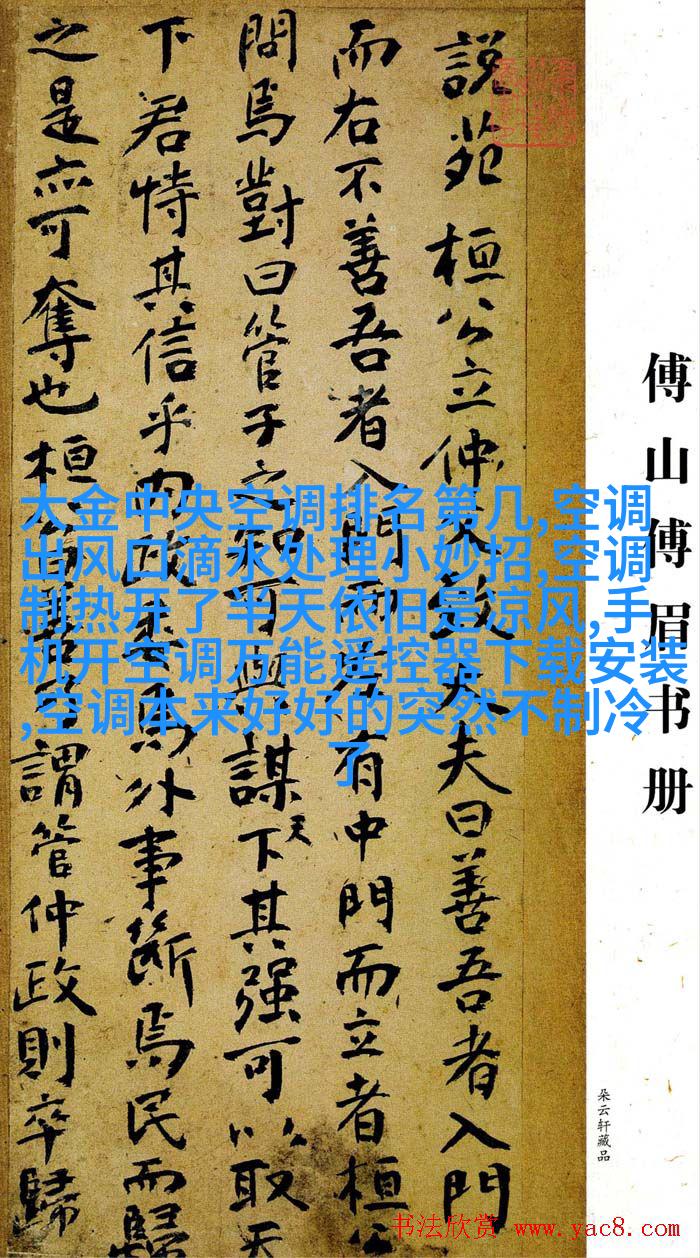 說苑 桓公立仲父致大夫曰善吾者入門
而右不善吾者入門而左有中門而立者桓公
問焉對曰管子之知可與謀天下其强可以取天
下君恃其信乎内政委焉外事斷焉民而歸
之是亦可奪也桓公曰善乃謂管仲政則卒歸
大金中央空调排名第几,空调
出风口滴水处理小妙招,空调
制热开了半天依旧是凉风,手
机开空调万能遥控器下载安装
,空调本来好好的突然不制冷
了
傅山傅眉书册
朵云轩藏品
书法欣赏 www.yac8.com